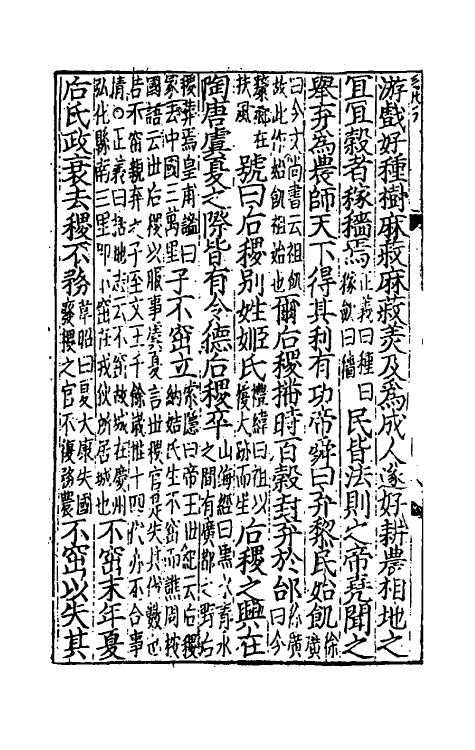 游戲好種樹麻菽麻菽美及為成人遂好耕農相地之
宜宜穀者稼穡焉正義曰種曰稼斂曰穡民皆法則之帝堯聞之
舉弃為農師天下得其利有功帝舜曰弃黎民始飢徐廣
曰今文尚書云祖飢故此作始飢祖始也爾后稷播時百穀封弃於邰徐廣曰今
斄鄉在扶風號曰后稷別姓姬氏禮緯曰祖以履大跡而生后稷之興在
陶唐虞夏之際皆有令德后稷卒山海經曰黑水青水之間有廣都之野后
稷葬焉皇甫謐曰冢去中國三萬里子不窋立索隱曰帝王世紀云后稷納姞氏生不窋而譙周按
國語云世后稷以服事虞夏言世稷官是失其代數也若不窋親弃之子至文王千餘歲唯十四代亦不合事
情○正義曰括地志云不窋故城在慶州弘化縣南三里即不窋在戎狄所居城也不窋末年夏
后氏政衰去稷不務韋昭曰夏太康失國廢稷之官不復務農不窋以失其